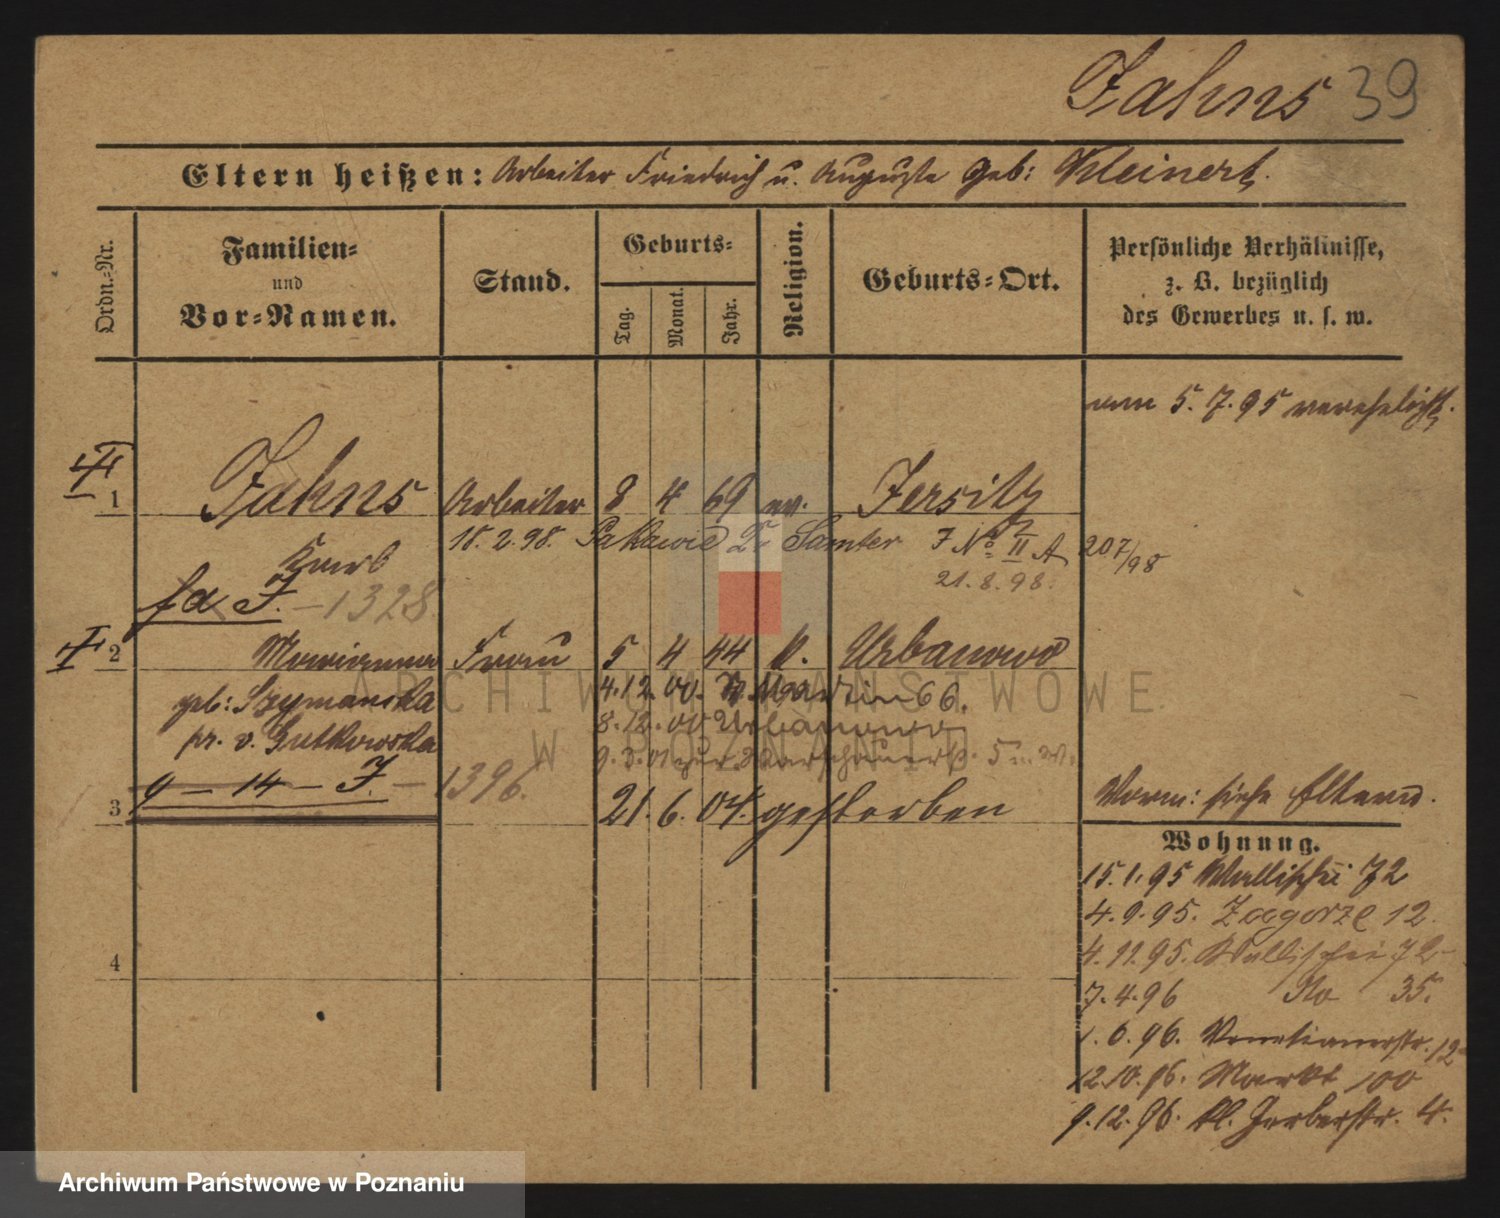 Jahns 39
Eltern heißen: Arbeiter Friedrich u. Auguste geb: Kleinert.
Ordn.-Nr.
Familien-
und
Vor-Namen.
Stand.
Geburts-
Tag.
Monat.
Jahr.
Religion.
Geburts-Ort.
Persönliche Verhältnisse,
z. B. bezüglich
des Gewerbes u. s. w.
am 5.7.95 verehelicht.
1 Jahns Arbeiter 8 4 69 ev. Jersitz
18.2.98. Pakawie Kr Samter J No II A 207/98
21.8.98.
Karl
fa J. - 1328
2 Marianna Frau 5 4 44 k. Urbanowo
geb: Szymanska 4.12.00. St. Martin 66.
8.12.00 Urbanowo
pr. v. Gutkowska
9.3.01
9 - 14 - J. - 1396.
3 21.6.04. gestorben
Vorm: siehe
Wohnung.
15.1.95 Wallischei 72
4.9.95. Zagorze 12.
4.11.95. Wallischei 72
7.4.96 do 35.
1.6.96. Venetianerstr. 12
12.10.96. Markt 100
9.12.96. kl. Gerberstr. 4.
4
ARCHIWUM PAŃSTWOWE
W POZNANIU
Archiwum Państwowe w Poznaniu